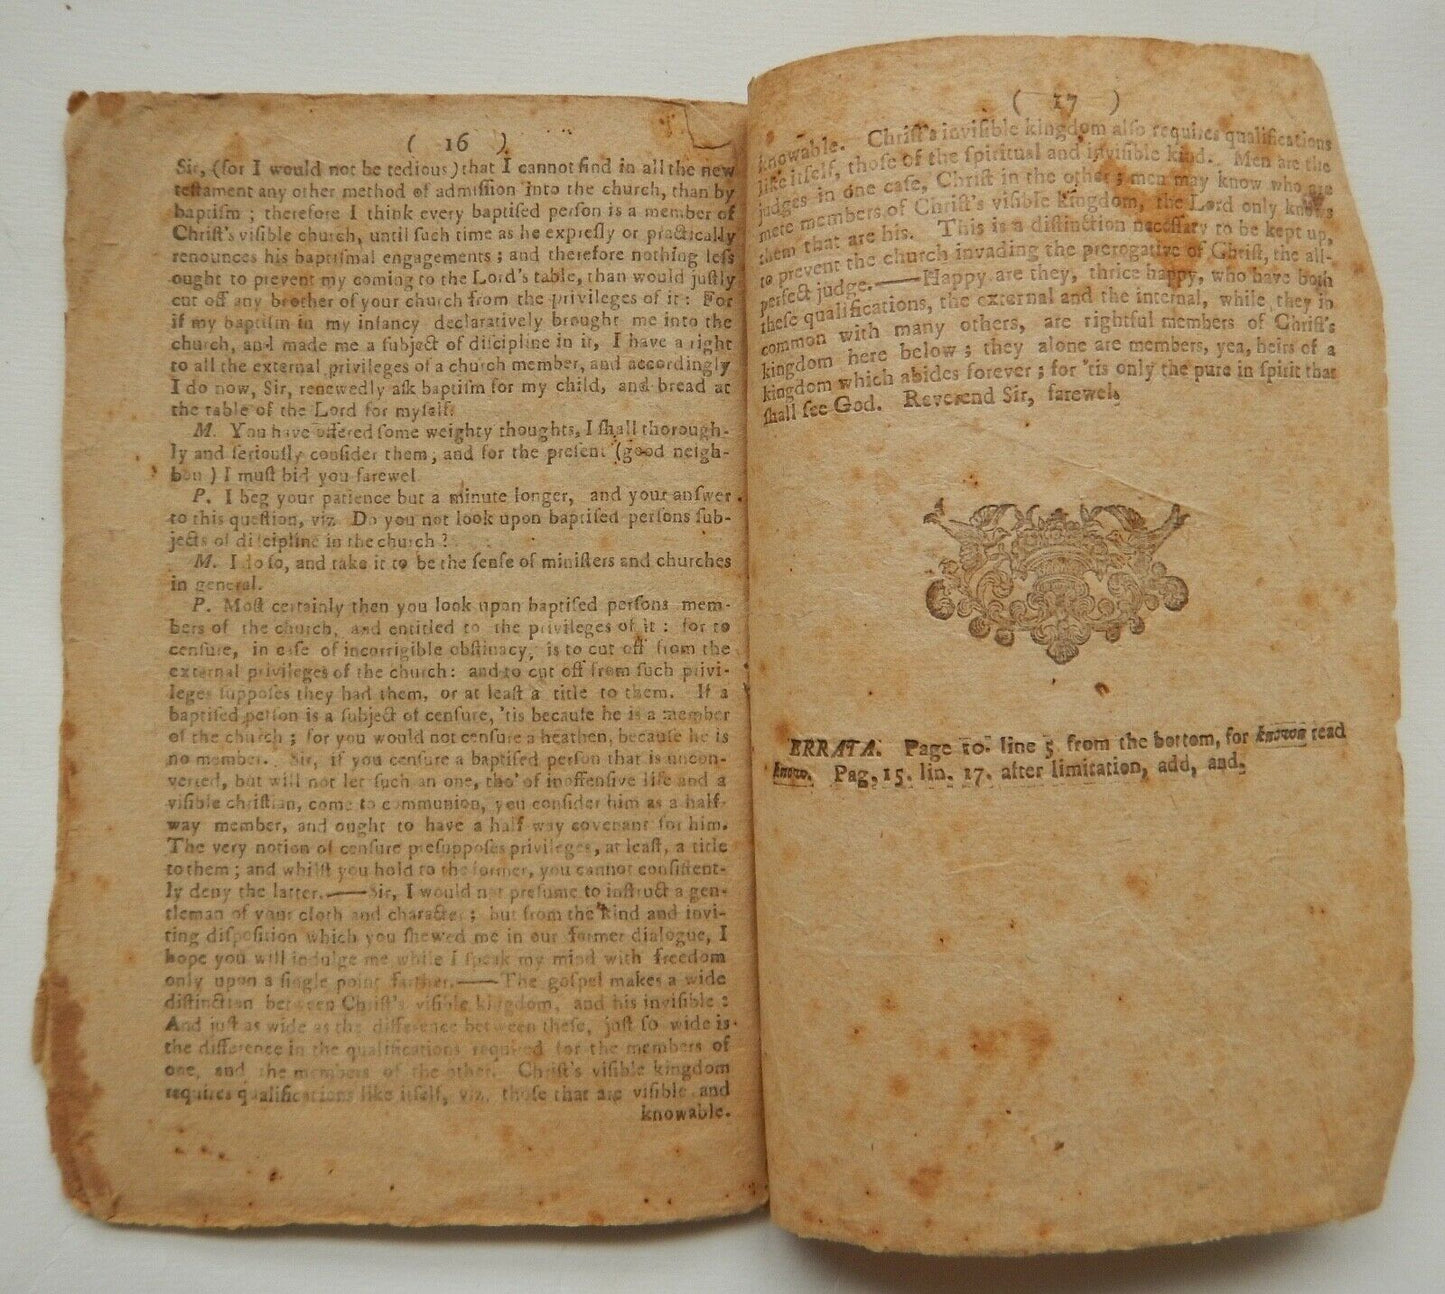 ( 16 )
Sir, (for I would not be tedious) that I cannot find in all the new
testament any other method of admiſſion into the church, than by
baptiſm ; therefore I think every baptiſed perſon is a member of
Chriſt's viſible church, until ſuch time as he expreſly or practically
renounces his baptiſmal engagements ; and therefore nothing leſs
ought to prevent my coming to the Lord's table, than would juſtly
cut off any brother of your church from the privileges of it : For
if my baptiſm in my infancy declaratively brought me into the
church, and made me a ſubject of diſcipline in it, I have a right
to all the external privileges of a church member, and accordingly
I do now, Sir, renewedly aſk baptiſm for my child, and bread at
the table of the Lord for myſelf.
M. You have offered ſome weighty thoughts, I ſhall thorough-
ly and ſeriouſly conſider them, and for the preſent (good neigh-
bou ) I muſt bid you farewel
P. I beg your patience but a minute longer, and your anſwer
to this queſtion, viz. Do you not look upon baptiſed perſons ſub-
jects of diſcipline in the church ?
M. I do ſo, and take it to be the ſenſe of miniſters and churches
in general.
P. Moſt certainly then you look upon baptiſed perſons mem-
bers of the church, and entitled to the privileges of it : for to
cenſure, in caſe of incorrigible obſtinacy, is to cut off from the
external privileges of the church : and to cut off from ſuch privi-
leges ſuppoſes they had them, or at leaſt a title to them. If a
baptiſed perſon is a ſubject of cenſure, 'tis becauſe he is a member
of the church ; for you would not cenſure a heathen, becauſe he is
no member. Sir, if you cenſure a baptiſed perſon that is uncon-
verted, but will not let ſuch an one, tho' of inoffenſive life and a
viſible chriſtian, come to communion, you conſider him as a half-
way member, and ought to have a half way covenant for him.
The very notion of cenſure preſuppoſes privileges, at leaſt, a title
to them ; and whilſt you hold to the former, you cannot conſiſtent-
ly deny the latter.——Sir, I would not preſume to inſtruct a gen-
tleman of your cloth and character ; but from the kind and invi-
ting diſpoſition which you ſhewed me in our former dialogue, I
hope you will indulge me while I ſpeak my mind with freedom
only upon a ſingle point farther.——The goſpel makes a wide
diſtinction between Chriſt's viſible kingdom, and his inviſible :
And juſt as wide as the difference between theſe, juſt ſo wide is
the difference in the qualifications required for the members of
one, and the members of the other. Chriſt's viſible kingdom
requires qualifications like itſelf, viz. thoſe that are viſible and
knowable.
( 17 )
knowable. Chriſt's inviſible kingdom alſo requires qualifications
like itſelf, thoſe of the ſpiritual and inviſible kind. Men are the
judges in one caſe, Chriſt in the other ; men may know who are
mere members of Chriſt's viſible kingdom, the Lord only knows
them that are his. This is a diſtinction neceſſary to be kept up,
to prevent the church invading the prerogative of Chriſt, the all-
perfect judge.——Happy are they, thrice happy, who have both
theſe qualifications, the external and the internal, while they in
common with many others, are rightful members of Chriſt's
kingdom here below ; they alone are members, yea, heirs of a
kingdom which abides forever ; for 'tis only the pure in ſpirit that
ſhall ſee God. Reverend Sir, farewel.
ERRATA. Page 10. line 5 from the bottom, for known read
know. Pag. 15. lin. 17. after limitation, add, and.